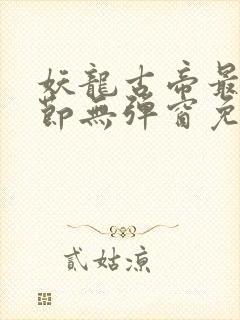 妖龍古帝最
節無彈窗免
貳姑涼